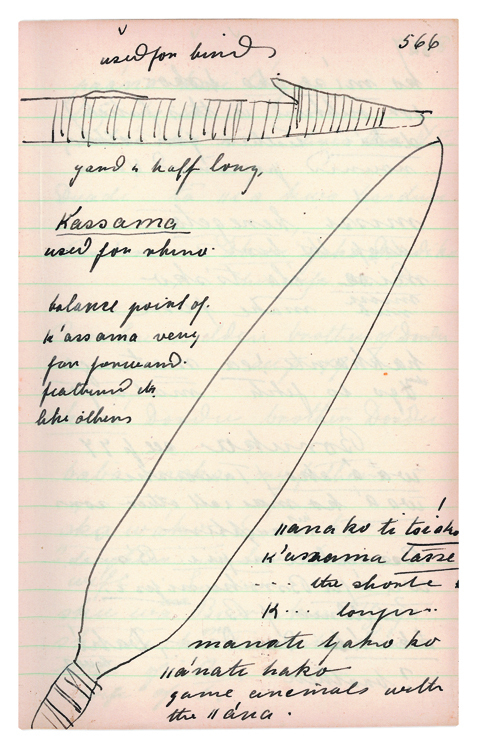 566
used for birds
yard & half long,
Kassama
used for rhino.
balance point of
k'assama very
far forward.
feathered etc.
like others
ǁana ko ti
k'assama tasse
.... the shorte
K... longer..
manati hako ko
ǁánati hako
game animals with
the ǁána.